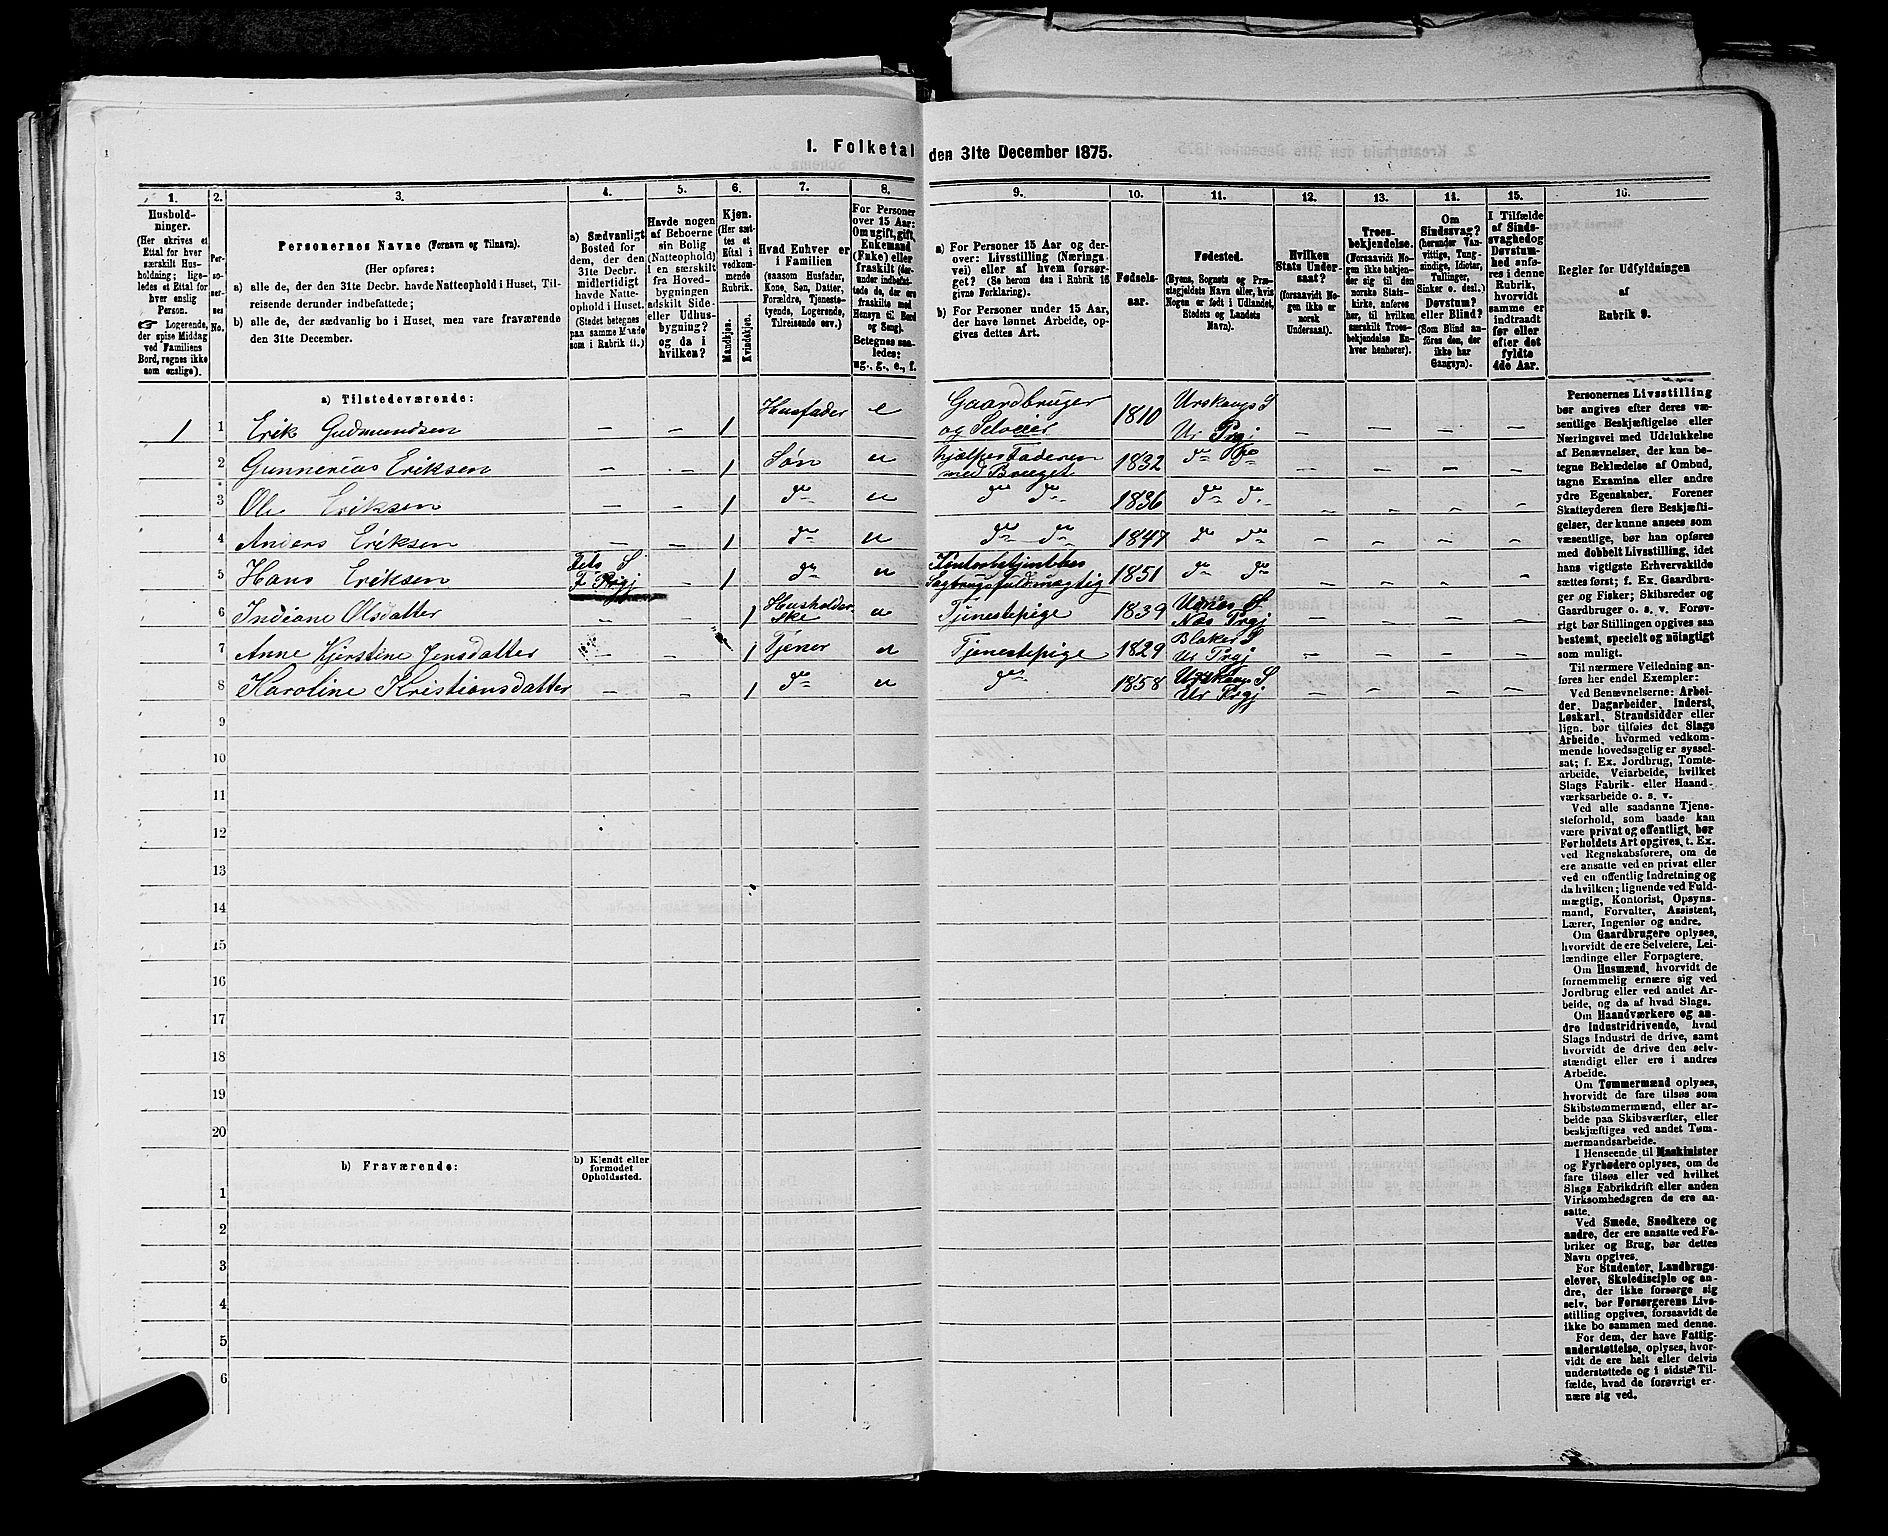 I. Folketal den 31te December 1875.
1. 2. 3. 4. 5. 6. 7. 8. 9. 10. 11. 12. 13. 14. 15. 16.
Husholdninger.
(Her skrives et
Ettal for hver
særskilt Husholdning; ligeledes et Ettal for
hver enslig
Person.
☞ Logerende,
der spise Middag
ved Familiens
Bord, regnes ikke
som enslige).
Personernes No.
Personernes Navne (Fornavn og Tilnavn).
(Her opføres:
a) alle de, der den 31te Decbr. havde Natteophold i Huset, Tilreisende derunder indbefattede;
b) alle de, der sædvanlig bo i Huset, men vare fraværende
den 31te December.
a) Sædvanligt
Bosted for
dem, der den
31te Decbr.
midlertidigt
havde Natteophold i Huset.
(Stedet betegnes
paa samme Maade
som i Rubrik 11.)
Havde nogen
af Beboerne
sin Bolig
(Natteophold)
i en særskilt
fra Hovedbygningen
adskilt Side-
eller Udhusbygning?
og da i
hvilken?
Kjøn.
(Her sættes et
Ettal i
vedkommende
Rubrik.
Mandkjøn.
Kvindekjøn.
Hvad Enhver er
i Familien
(saasom Husfader,
Kone, Søn, Datter,
Forældre, Tjenestetyende, Logerende,
Tilreisende osv.)
For Personer
over 15 Aar:
Om ugift, gift,
Enkemand
(Enke) eller
fraskilt (derunder indbefattede de, der ere
fraskilte med
Hensyn til Bord
og Seng).
Betegnes saaledes:
ug., g., e., f.
a) For Personer 15 Aar og derover: Livsstilling (Næringsvei) eller af hvem forsørget? (Se herom den i Rubrik 16
givne Forklaring).
b) For Personer under 15 Aar,
der have lønnet Arbeide, opgives dettes Art.
Fødselsaar.
Fødested.
(Byens, Sognets og Præstegjeldets Navn eller, hvis
Nogen er født i Udlandet,
Stedets og Landets
Navn).
Hvilken
Stats Undersaat?
(forsaavidt Nogen ikke er
norsk
Undersaat).
Troesbekjendelse.
(Forsaavidt Nogen ikke bekjender sig til den
norske Statskirke, anføres
her, til hvilken
særskilt Troesbekjendelse Enhver henhører).
Om
Sindssvag?
(herunder Vanvittige, Tungsindige, Idioter,
Tullinger,
Sinker o. desl.)
Døvstum?
eller Blind?
(Som Blind anføres den, der
ikke har
Gangsyn).
I Tilfælde
af Sindssvaghed og
Døvstumhed anføres i denne
Rubrik,
hvorvidt
samme er
indtraadt
før eller
efter det
fyldte
4de Aar.
Regler for Udfyldningen
af
Rubrik 9.
a) Tilstedeværende:
1 1 Erik Gudmundsen — — 1 Husfader e Gaardbruger og Selveier 1810 Urskougs S Ur Prgj — — — —
2 Gunnerius Eriksen — — 1 Søn u hjælper Faderen med Bruget 1832 do do — — — —
3 Ole Eriksen — — 1 do u do do 1836 do do — — — —
4 Anders Eriksen — — 1 do u do do 1847 do do — — — —
5 Hans Eriksen Fets S F Prgj — 1 do u Sagbrugsfuldmægtig 1851 do do — — — —
6 Indiane Olsdatter — — 1 Husholderske u Tjenestepige 1839 Udnes S Næs Prgj — — — —
7 Anne Kjerstine Jensdatter — — 1 Tjener u Tjenestepige 1829 Blaker S Ur Prgj — — — —
8 Karoline Kristiansdatter — — 1 do u do 1858 Urskougs S Ur Prgj — — — —
9
10
11
12
13
14
15
16
17
18
19
20
b) Fraværende:
b) Kjendt eller
formodet
Opholdssted.
1
2
3
4
5
6
Personernes Livsstilling
bør angives efter deres væsentlige Beskjæftigelse eller
Næringsvei med Udelukkelse
af Benævnelser, der kun betegne Beklædelse af Ombud,
tagne Examina eller andre
ydre Egenskaber. Forener
Skatteyderen flere Beskjæftigelser, der kunne ansees som
væsentlige, bør han opføres
med dobbelt Livsstilling, idet
hans vigtigste Erhvervskilde
sættes først; f. Ex. Gaardbruger og Fisker; Skibsreder og
Gaardbruger o. s. v. Forøvrigt bør Stillingen opgives saa
bestemt, specielt og nøiagtigt
som muligt.
Til nærmere Veiledning anføres her endel Exempler:
Ved Benævnelserne: Arbeider, Dagarbeider, Inderst,
Løskarl, Strandsidder eller
lign. bør tilføies det Slags
Arbeide, hvormed vedkommende hovedsagelig er sysselsat; f. Ex. Jordbrug, Tomtearbeide, Veiarbeide, hvilket
Slags Fabrik- eller Haandværksarbeide o. s. v.
Ved alle saadanne Tjenesteforhold, som baade kan
være privat og offentligt, bør
Forholdets Art opgives, t. Ex.
ved Regnskabsførere, om de
ere ansatte ved en privat eller
ved en offentlig Indretning og
da hvilken; lignende ved Fuldmægtig, Kontorist, Opsynsmand, Forvalter, Assistent,
Lærer, Ingeniør og andre.
Om Gaardbrugere oplyses,
hvorvidt de ere Selveiere, Leilændinge eller Forpagtere.
Om Husmænd, hvorvidt de
fornemmelig ernære sig ved
Jordbrug eller ved andet Arbeide, og da af hvad Slags.
Om Haandværkere og andre Industridrivende, hvad
Slags Industri de drive, samt
hvorvidt de drive den selvstændigt eller ere i andres
Arbeide.
Om Tømmermænd oplyses,
hvorvidt de fare tilsøs som
Skibstømmermænd, eller arbeide paa Skibsværfter, eller
beskjæftiges ved andet Tømmermandsarbeide.
I Henseende til Maskinister
og Fyrbødere oplyses, om de
fare tilsøs eller ved hvilket
Slags Fabrikdrift eller anden
Virksomhedsgren de ere ansatte.
Ved Smede, Snedkere og
andre, der ere ansatte ved Fabriker og Brug, bør dettes
Navn opgives.
For Studenter, Landbrugselever, Skoledisciple og andre, der ikke forsørge sig
selv, bør Forsørgerens Livsstilling opgives, forsaavidt de
ikke bo sammen med denne.
For dem, der have Fattigunderstøttelse, oplyses, hvorvidt de ere helt eller delvis
understøttede og i sidste Tilfælde, hvad de forøvrigt ernære sig ved.